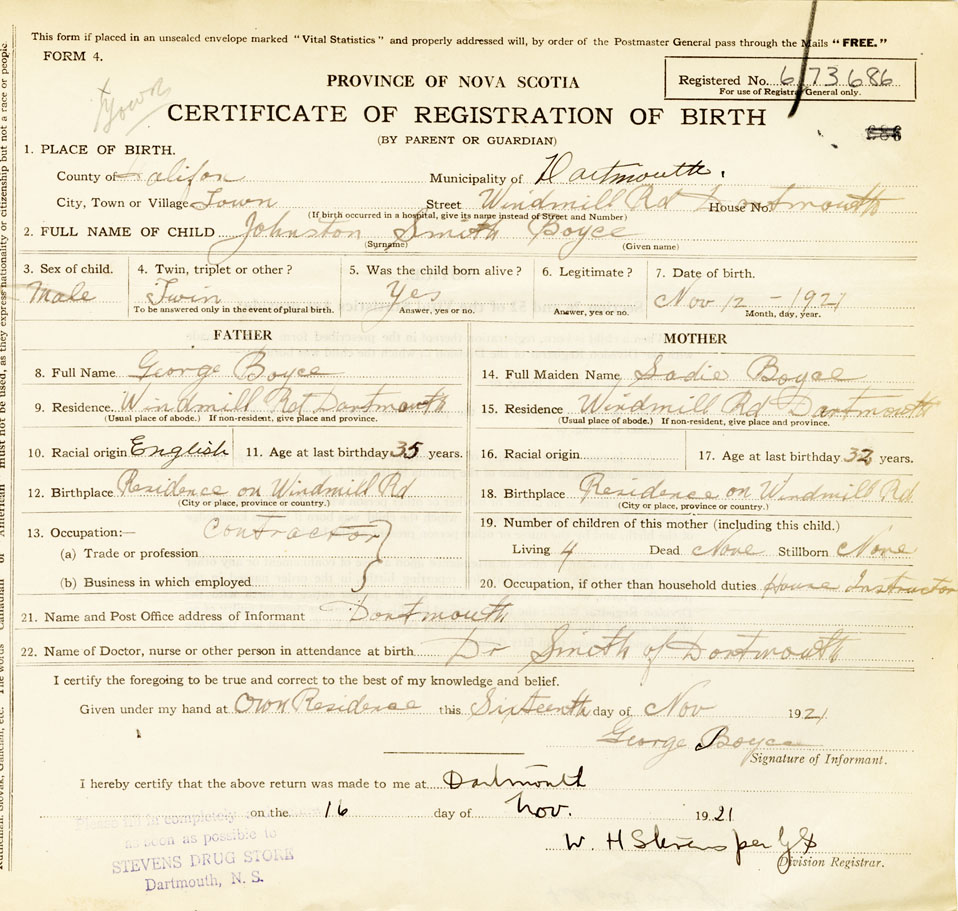 This form if placed in an unsealed envelope marked "Vital Statistics" and properly addressed will, by order of the Postmaster General pass through the Mails "FREE."
FORM 4.
PROVINCE OF NOVA SCOTIA
Registered No. 6173686
For use of Registrar General only.
CERTIFICATE OF REGISTRATION OF BIRTH
(BY PARENT OR GUARDIAN)
1. PLACE OF BIRTH.
County of Halifax Municipality of Dartmouth.
City, Town or Village Town Street Windmill Rd Dartmouth House No.
(If birth occurred in a hospital, give its name instead of Street and Number)
2. FULL NAME OF CHILD Johnston Smith Boyce
(Surname) (Given name)
3. Sex of child. 4. Twin, triplet or other? 5. Was the child born alive? 6. Legitimate? 7. Date of birth.
Male Twin Yes Nov 12 - 1921
To be answered only in the event of plural birth. Answer, yes or no. Answer, yes or no. Month, day, year.
FATHER MOTHER
8. Full Name George Boyce 14. Full Maiden Name Sadie Boyce
9. Residence. Windmill Rd Dartmouth 15. Residence Windmill Rd Dartmouth
(Usual place of abode.) If non-resident, give place and province. (Usual place of abode.) If non-resident, give place and province.
10. Racial origin English 11. Age at last birthday 35 years. 16. Racial origin 17. Age at last birthday 32 years.
12. Birthplace Residence on Windmill Rd 18. Birthplace Residence on Windmill Rd
(City or place, province or country.) (City or place, province or country.)
13. Occupation:— Contractor 19. Number of children of this mother (including this child.)
(a) Trade or profession Living 4 Dead None Stillborn None
(b) Business in which employed 20. Occupation, if other than household duties House Instructor
21. Name and Post Office address of Informant Dartmouth
22. Name of Doctor, nurse or other person in attendance at birth. Dr Smith of Dartmouth
I certify the foregoing to be true and correct to the best of my knowledge and belief.
Given under my hand at Own Residence this Sixteenth day of Nov 1921
George Boyce
Signature of Informant.
I hereby certify that the above return was made to me at Dartmouth
on the 16 day of Nov. 1921
W. H Stevens per
Division Registrar.
Please fill in completely
as soon as possible to
STEVENS DRUG STORE
Dartmouth, N. S.